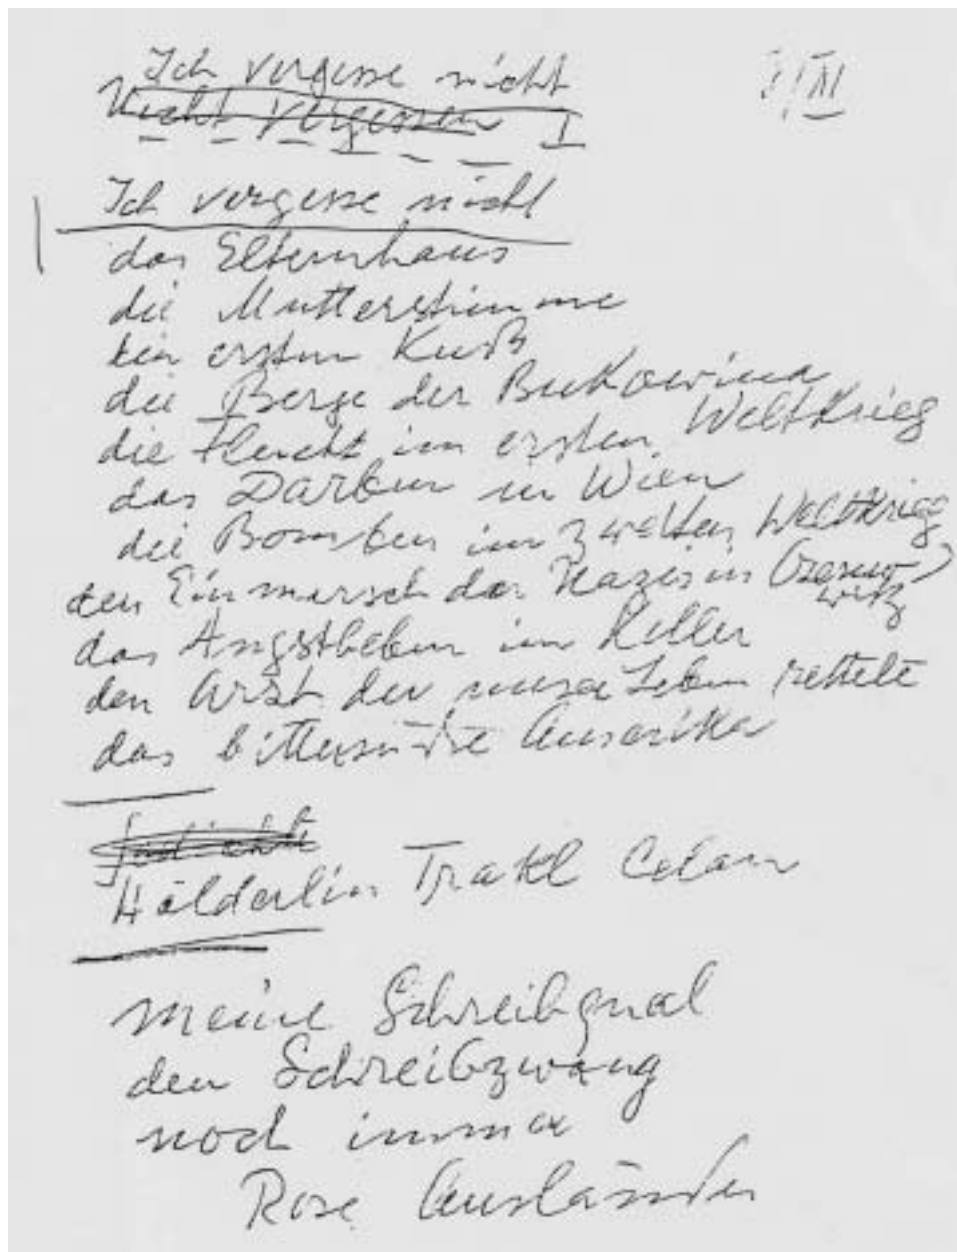 Ich vergesse nicht
Nicht Vergessen I
/XI
Ich vergesse nicht
das Elternhaus
die Mutterstimme
den ersten Kuß
die Berge der Bukowina
die Flucht im ersten Weltkrieg
das Darben in Wien
die Bomben im zweiten Weltkrieg
den Einmarsch der Nazis in Czernowitz
das Angstbeben im Keller
den Arzt der unser Leben rettete
das bittersüße Amerika
Gedichte
Hölderlin Trakl Celan
meine Schreibqual
den Schreibzwang
noch immer
Rose Ausländer